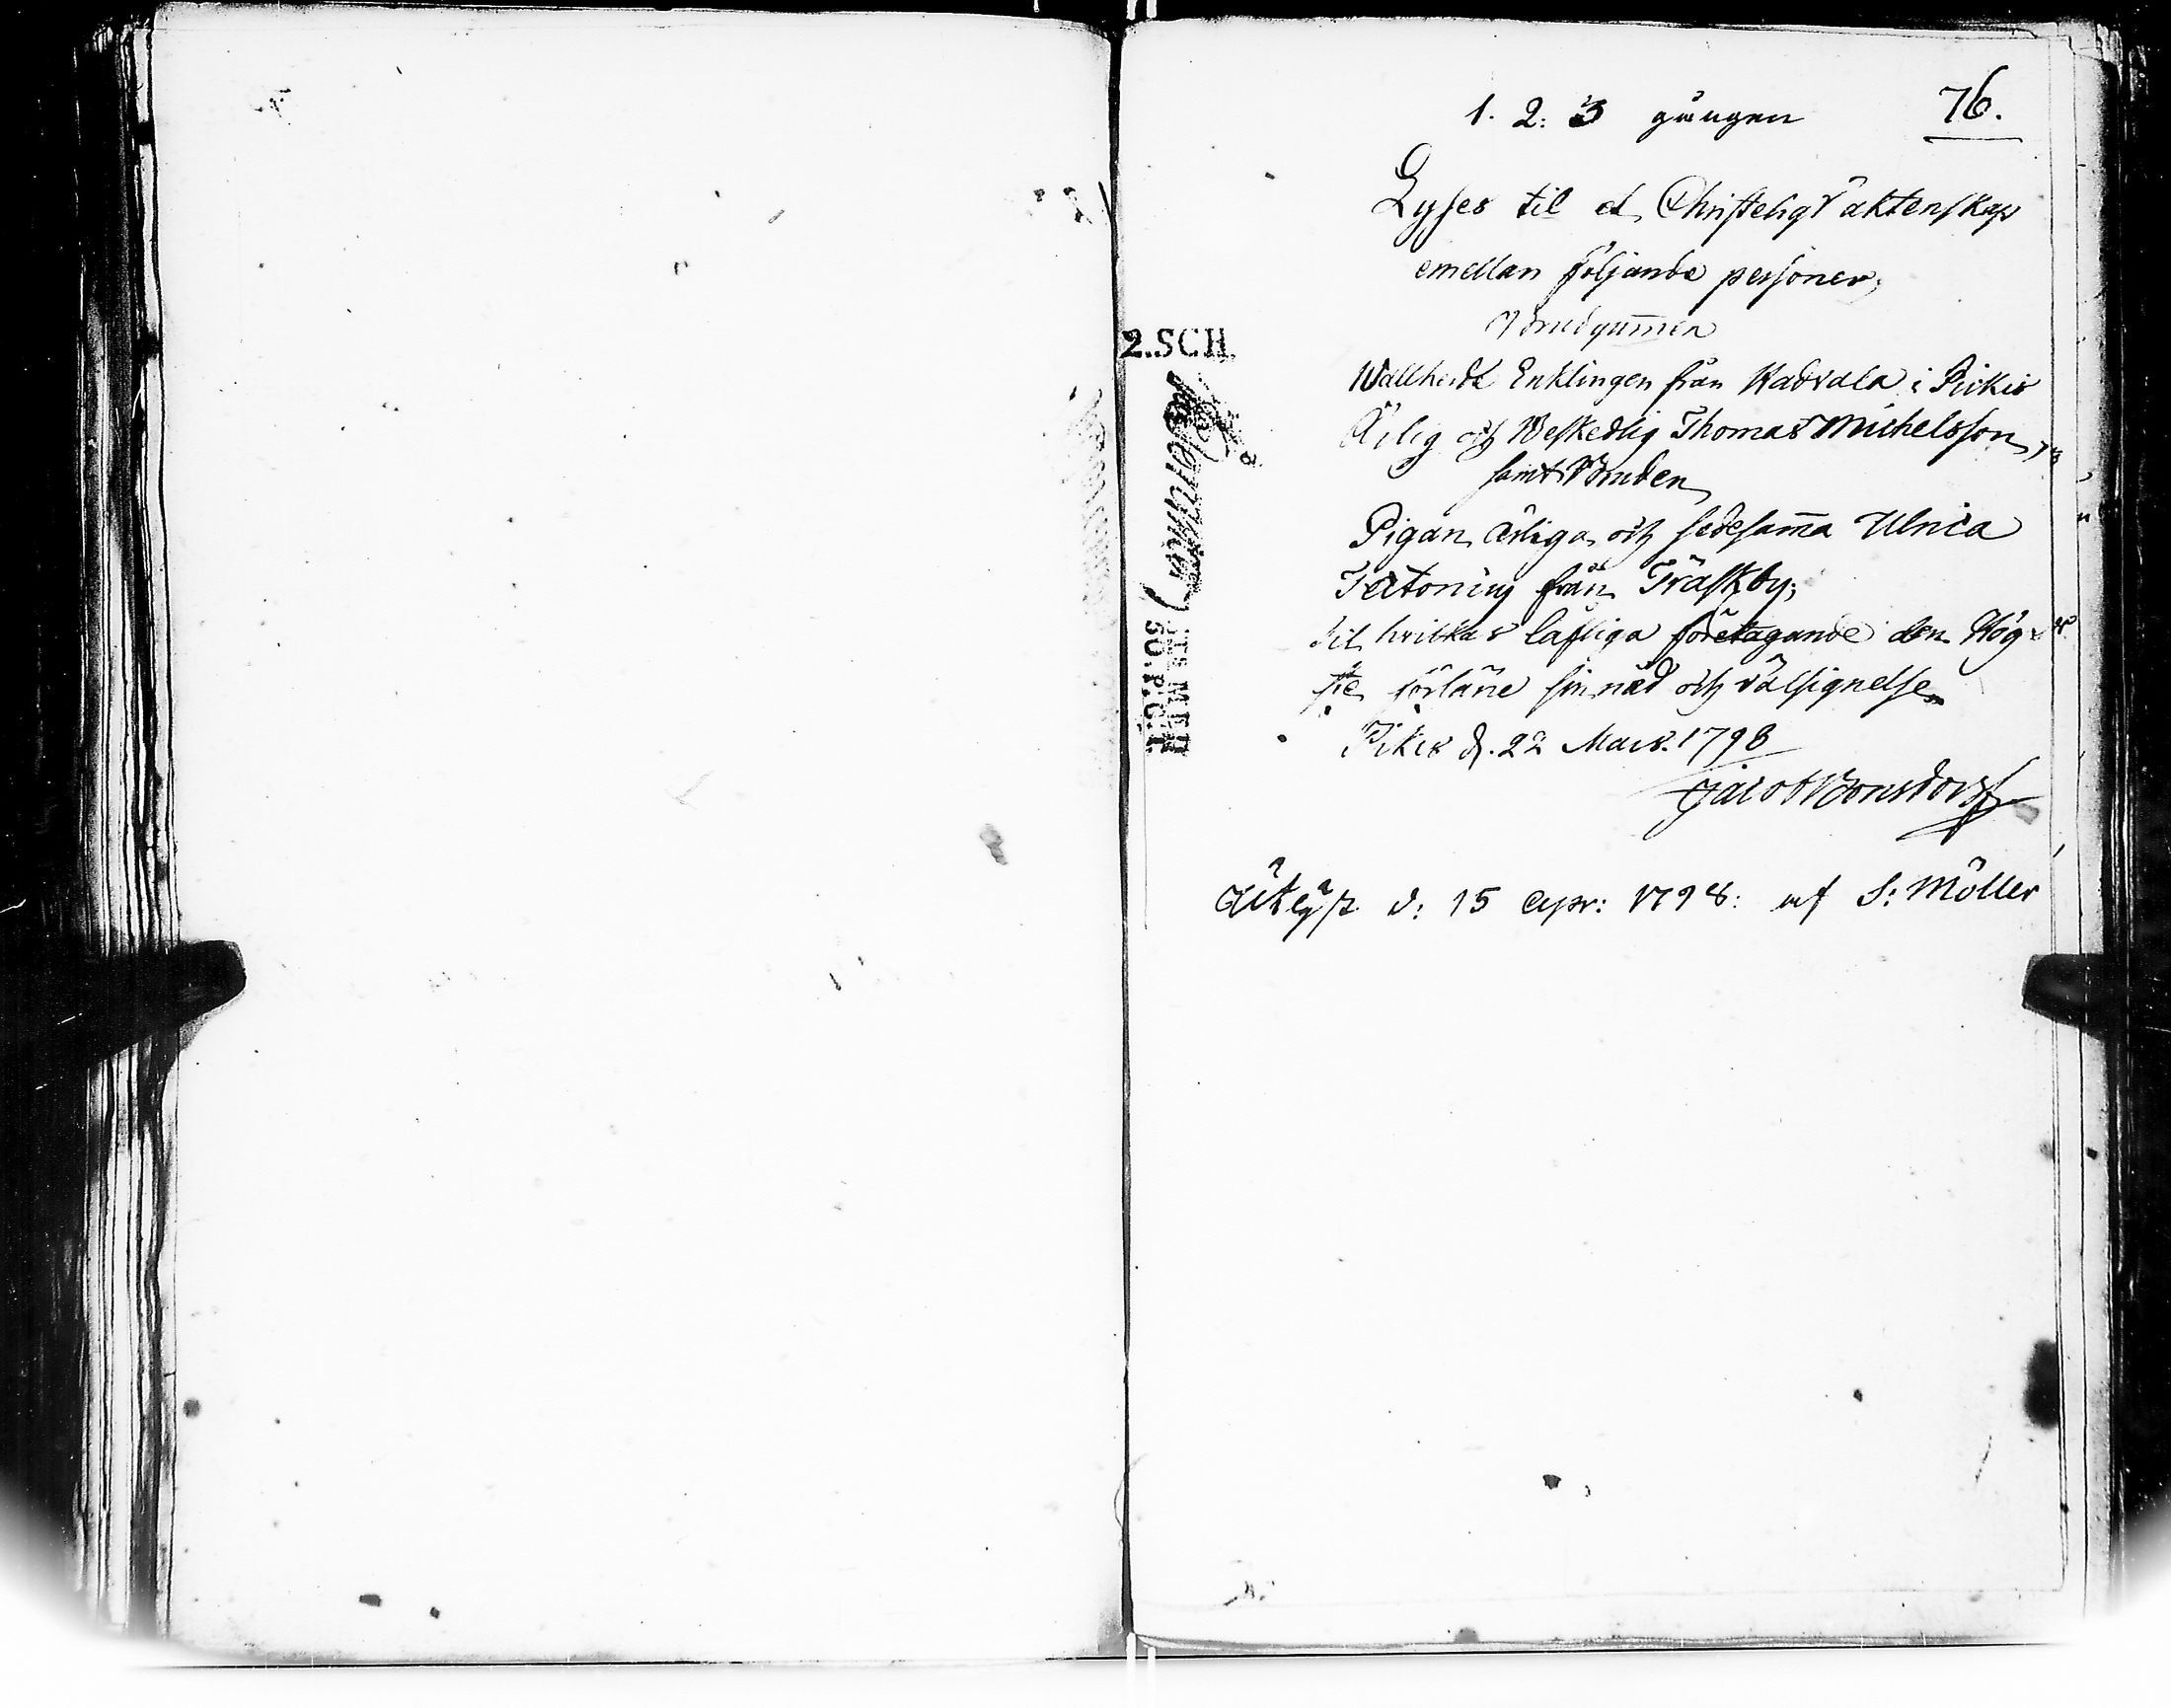 1. 2: 3 gången
76.
Lyses til et Christeligt äktenskap
emellan följande personer,
Brudgummen
Wällärde Enklingen från Hadvala i Pickis
Ärlig och Beskedlig Thomas Michelsson,
samt Bruden
Pigan ärliga och sedesamma Ulrica
från Träskby;
til hvilkas lafliga företagande den Hög
ste förläne sin nåd och välsignelse
Pikis d. 22 Mars. 1798
Jacob Bonsdorff
Utlyst d: 15 Apr: 1798: af S: Möller
2.SCH.